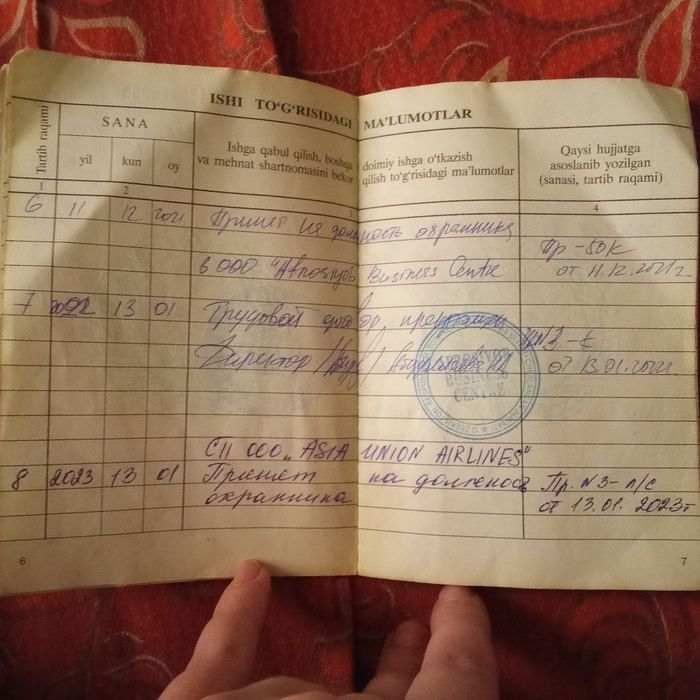 ISHI TO‘G‘RISIDAGI MA’LUMOTLAR
Tartib raqami
SANA
yil kun oy
Ishga qabul qilish, boshqa doimiy ishga o‘tkazish
va mehnat shartnomasini bekor qilish to‘g‘risidagi ma’lumotlar
Qaysi hujjatga
asoslanib yozilgan
(sanasi, tartib raqami)
1 2 3 4
6 11 12 2021 Принет на должность охранника
в ООО "Afrosiyob Business Centre Пр-50к
от 11.12.2021г
7 2022 13 01 Трудовой договор прекращен
N3-к
Директор от 13.01.2022г
BUSINESS
CENTRE
СП ООО „ASIA UNION AIRLINES"
8 2023 13 01 Принет на должность Пр. N3-л/с
охранника от 13.01.2023г
6 7